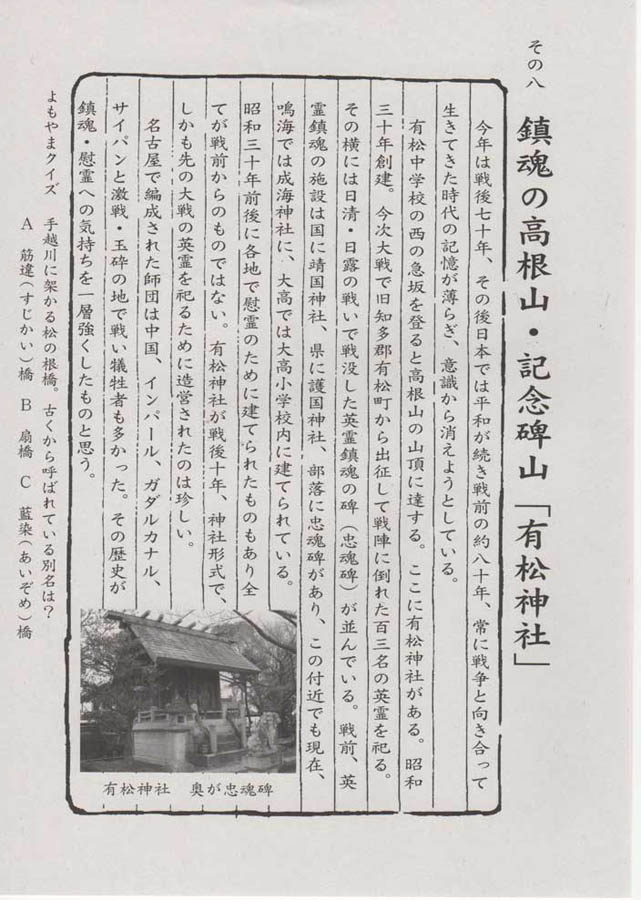 その八
鎮魂の高根山・記念碑山「有松神社」
今年は戦後七十年、その後日本では平和が続き戦前の約八十年、常に戦争と向き合って
生きてきた時代の記憶が薄らぎ、意識から消えようとしている。
有松中学校の西の急坂を登ると高根山の山頂に達する。ここに有松神社がある。昭和
三十年創建。今次大戦で旧知多郡有松町から出征して戦陣に倒れた百三名の英霊を祀る。
その横には日清・日露の戦いで戦没した英霊鎮魂の碑（忠魂碑）が並んでいる。戦前、英
霊鎮魂の施設は国に靖国神社、県に護国神社、部落に忠魂碑があり、この付近でも現在、
鳴海では成海神社に、大高では大高小学校内に建てられている。
昭和三十年前後に各地で慰霊のために建てられたものもあり全
てが戦前からのものではない。有松神社が戦後十年、神社形式で、
しかも先の大戦の英霊を祀るために造営されたのは珍しい。
名古屋で編成された師団は中国、インパール、ガダルカナル、
サイパンと激戦・玉砕の地で戦い犠牲者も多かった。その歴史が
鎮魂・慰霊への気持ちを一層強くしたものと思う。
有松神社　奥が忠魂碑
よもやまクイズ　手越川に架かる松の根橋。古くから呼ばれている別名は？
A　筋違（すじかい）橋　B　扇橋　C　藍染（あいぞめ）橋